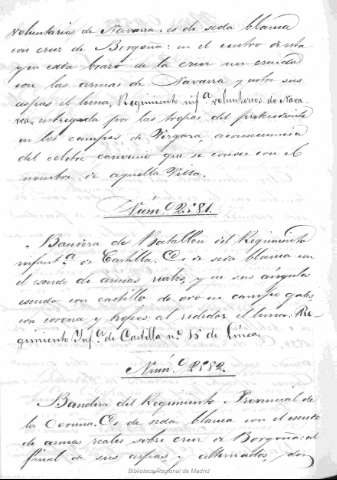 voluntarios de Navarra. es de seda blanca
con cruz de Borgoña: en el centro de esta
y en cada brazo de la cruz un escudo
con las armas de Navarra y entre sus
aspas el lema, Regimiento inf.ª voluntarios de Nava
rra, entregada por las tropas del pretendiente
en los campos de Vergara, a consecuencia
del celebre convenio que se conoce con el
nombre de aquella Villa.
Núm.º 2.581.
Bandera de Batallon del Regimiento
infant.ª de Castilla. Es de seda blanca con
el escudo de armas reales, y en sus ángulos
escudo con castillo de oro en campo gules
con corona y trofeos al rededor el lema: Re-
gimiento Inf.ª de Castilla n.º 15 de línea.
Núm.º 2.582.
Bandera del Regimiento Provincial de
la Coruña. Es de seda blanca con el escudo
de armas reales sobre cruz de Borgoña: al
final de sus aspas y alternados, dos
Biblioteca Regional de Madrid